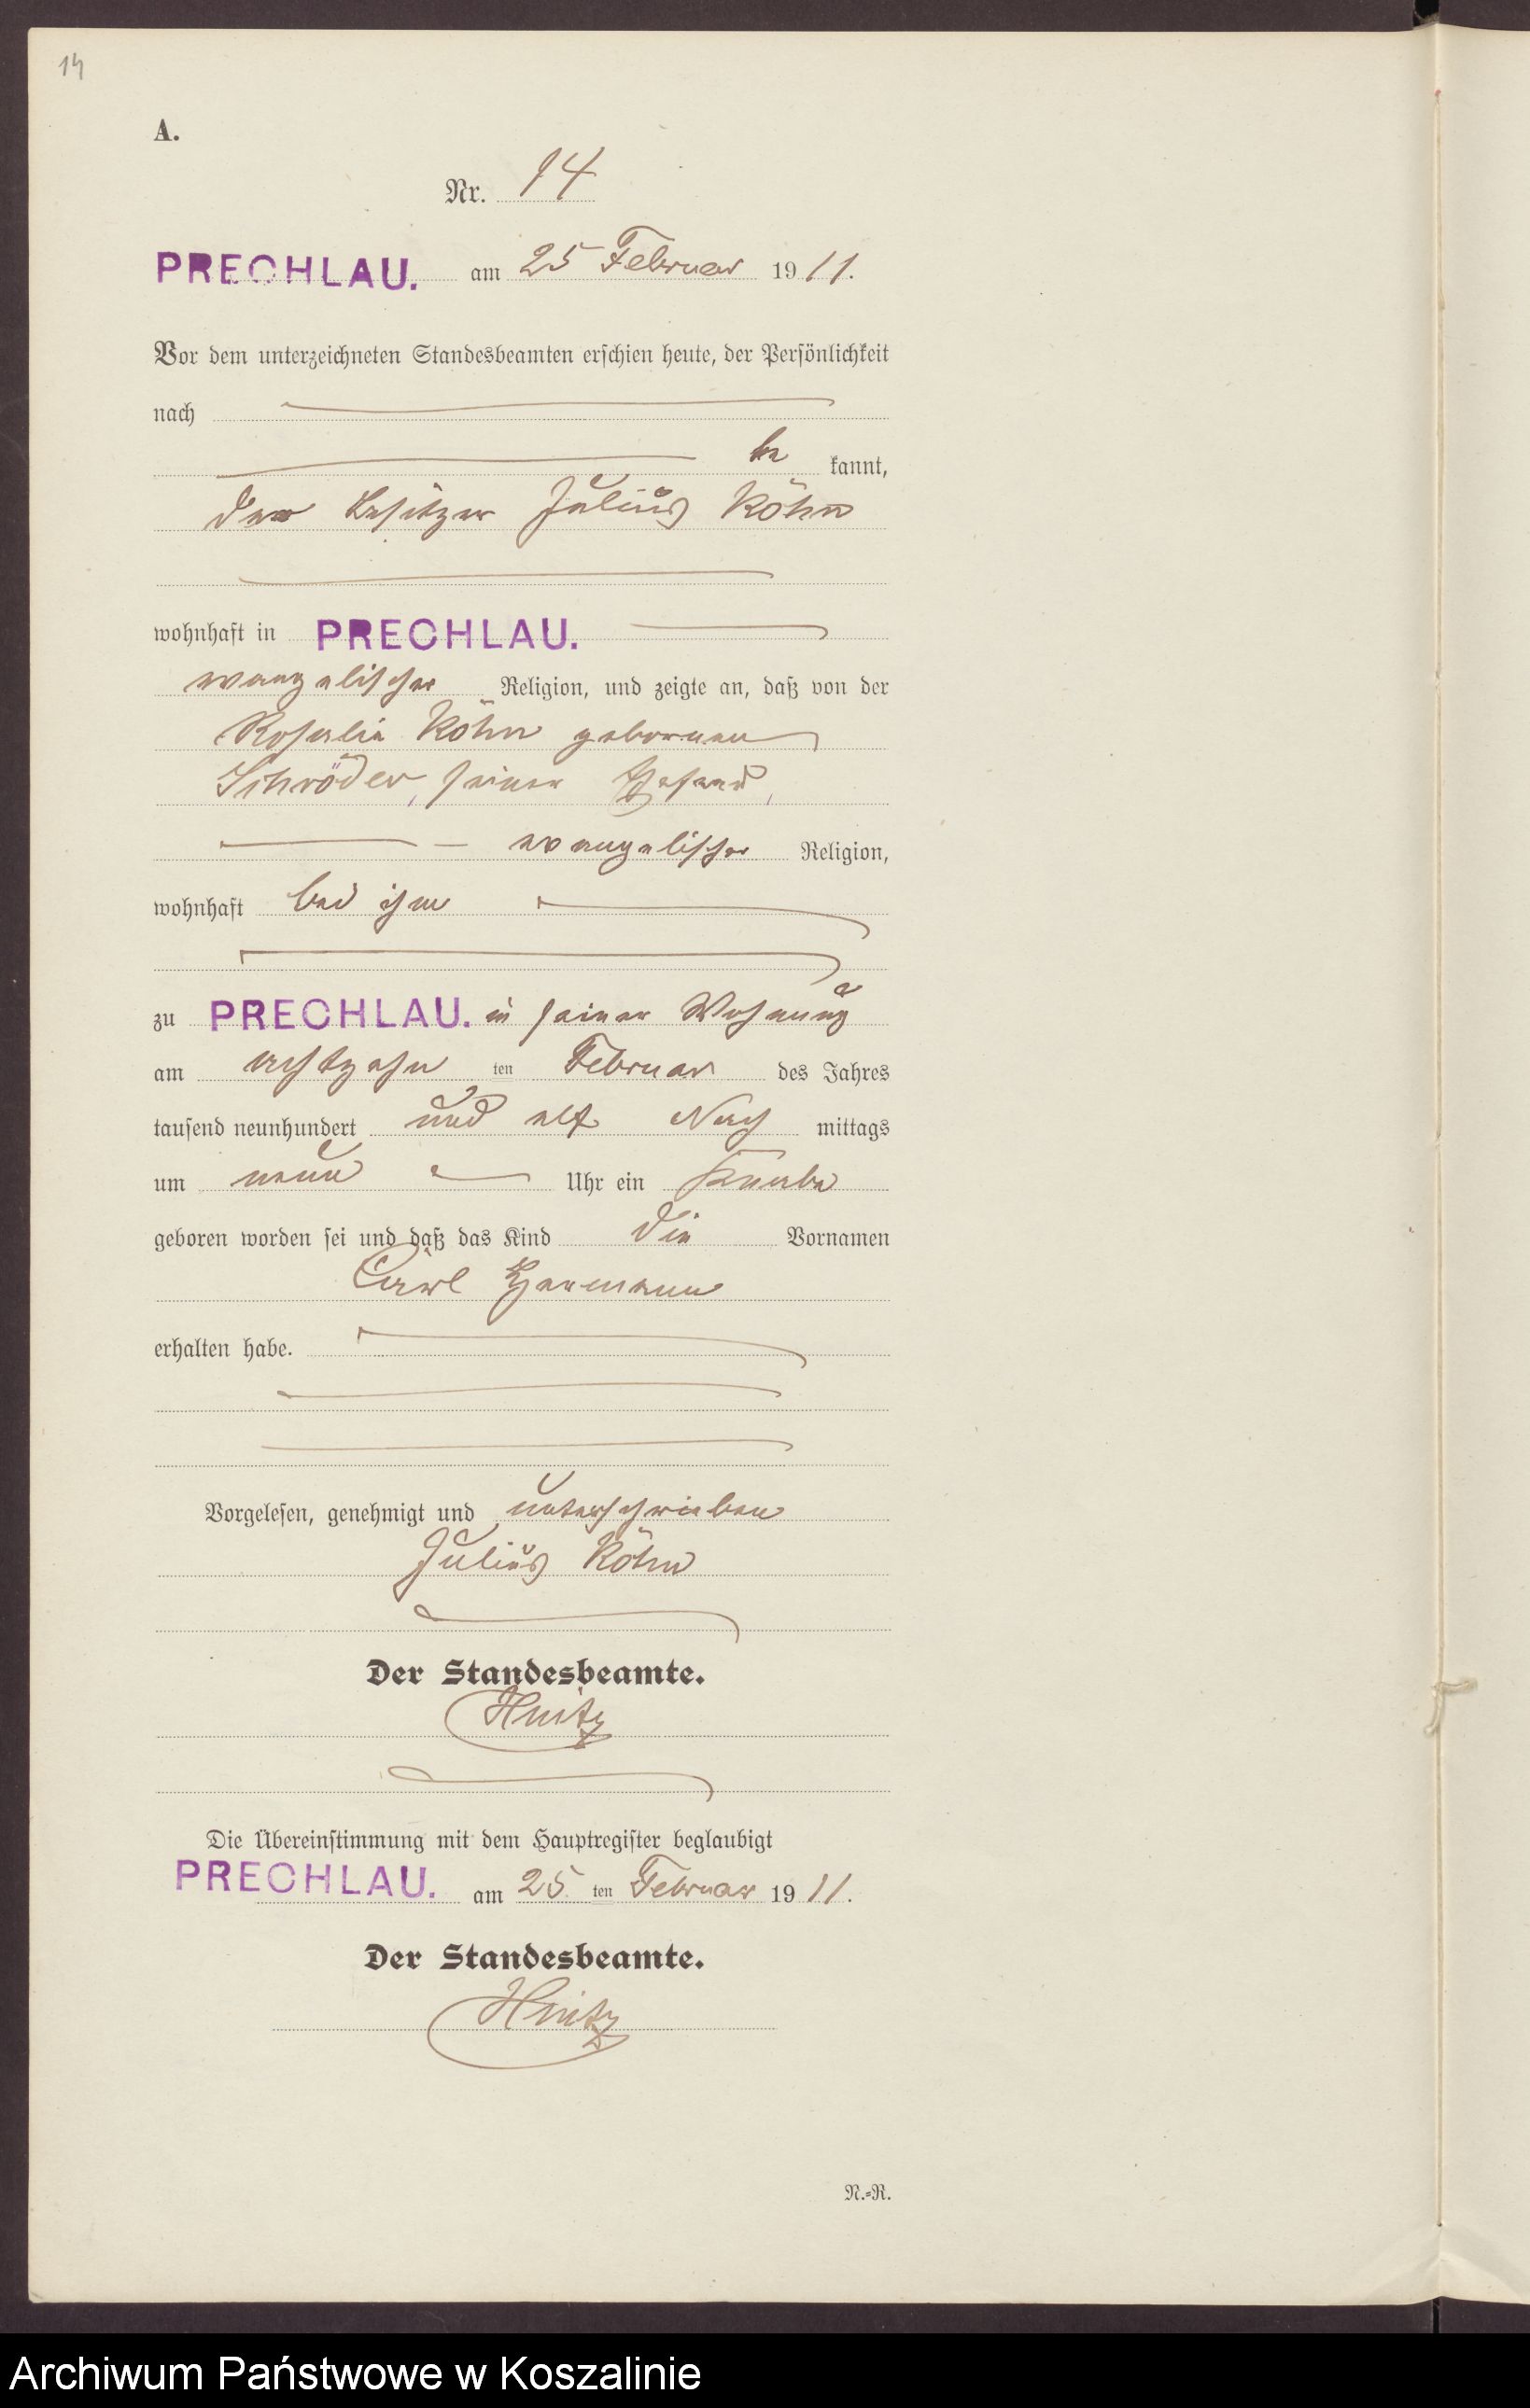 14
A.
Nr. 14
PRECHLAU. am 25 Februar 1911.
Vor dem unterzeichneten Standesbeamten erschien heute, der Persönlichkeit
nach
be kannt,
der Besitzer Julius Köhn
wohnhaft in PRECHLAU.
evangelischer Religion, und zeigte an, daß von der
Rosalie Köhn geborenen
Schröder, seiner Ehefrau,
evangelischer Religion,
wohnhaft bei ihm
zu PRECHLAU. in seiner Wohnung
am achtzehn ten Februar des Jahres
tausend neunhundert und elf Nach mittags
um neun Uhr ein Knabe
geboren worden sei und daß das Kind die Vornamen
Carl Hermann
erhalten habe.
Vorgelesen, genehmigt und unterschrieben
Julius Köhn
Der Standesbeamte.
Hintz
Die Übereinstimmung mit dem Hauptregister beglaubigt
PRECHLAU. am 25 ten Februar 1911.
Der Standesbeamte.
Hintz
N.=R.
Archiwum Państwowe w Koszalinie